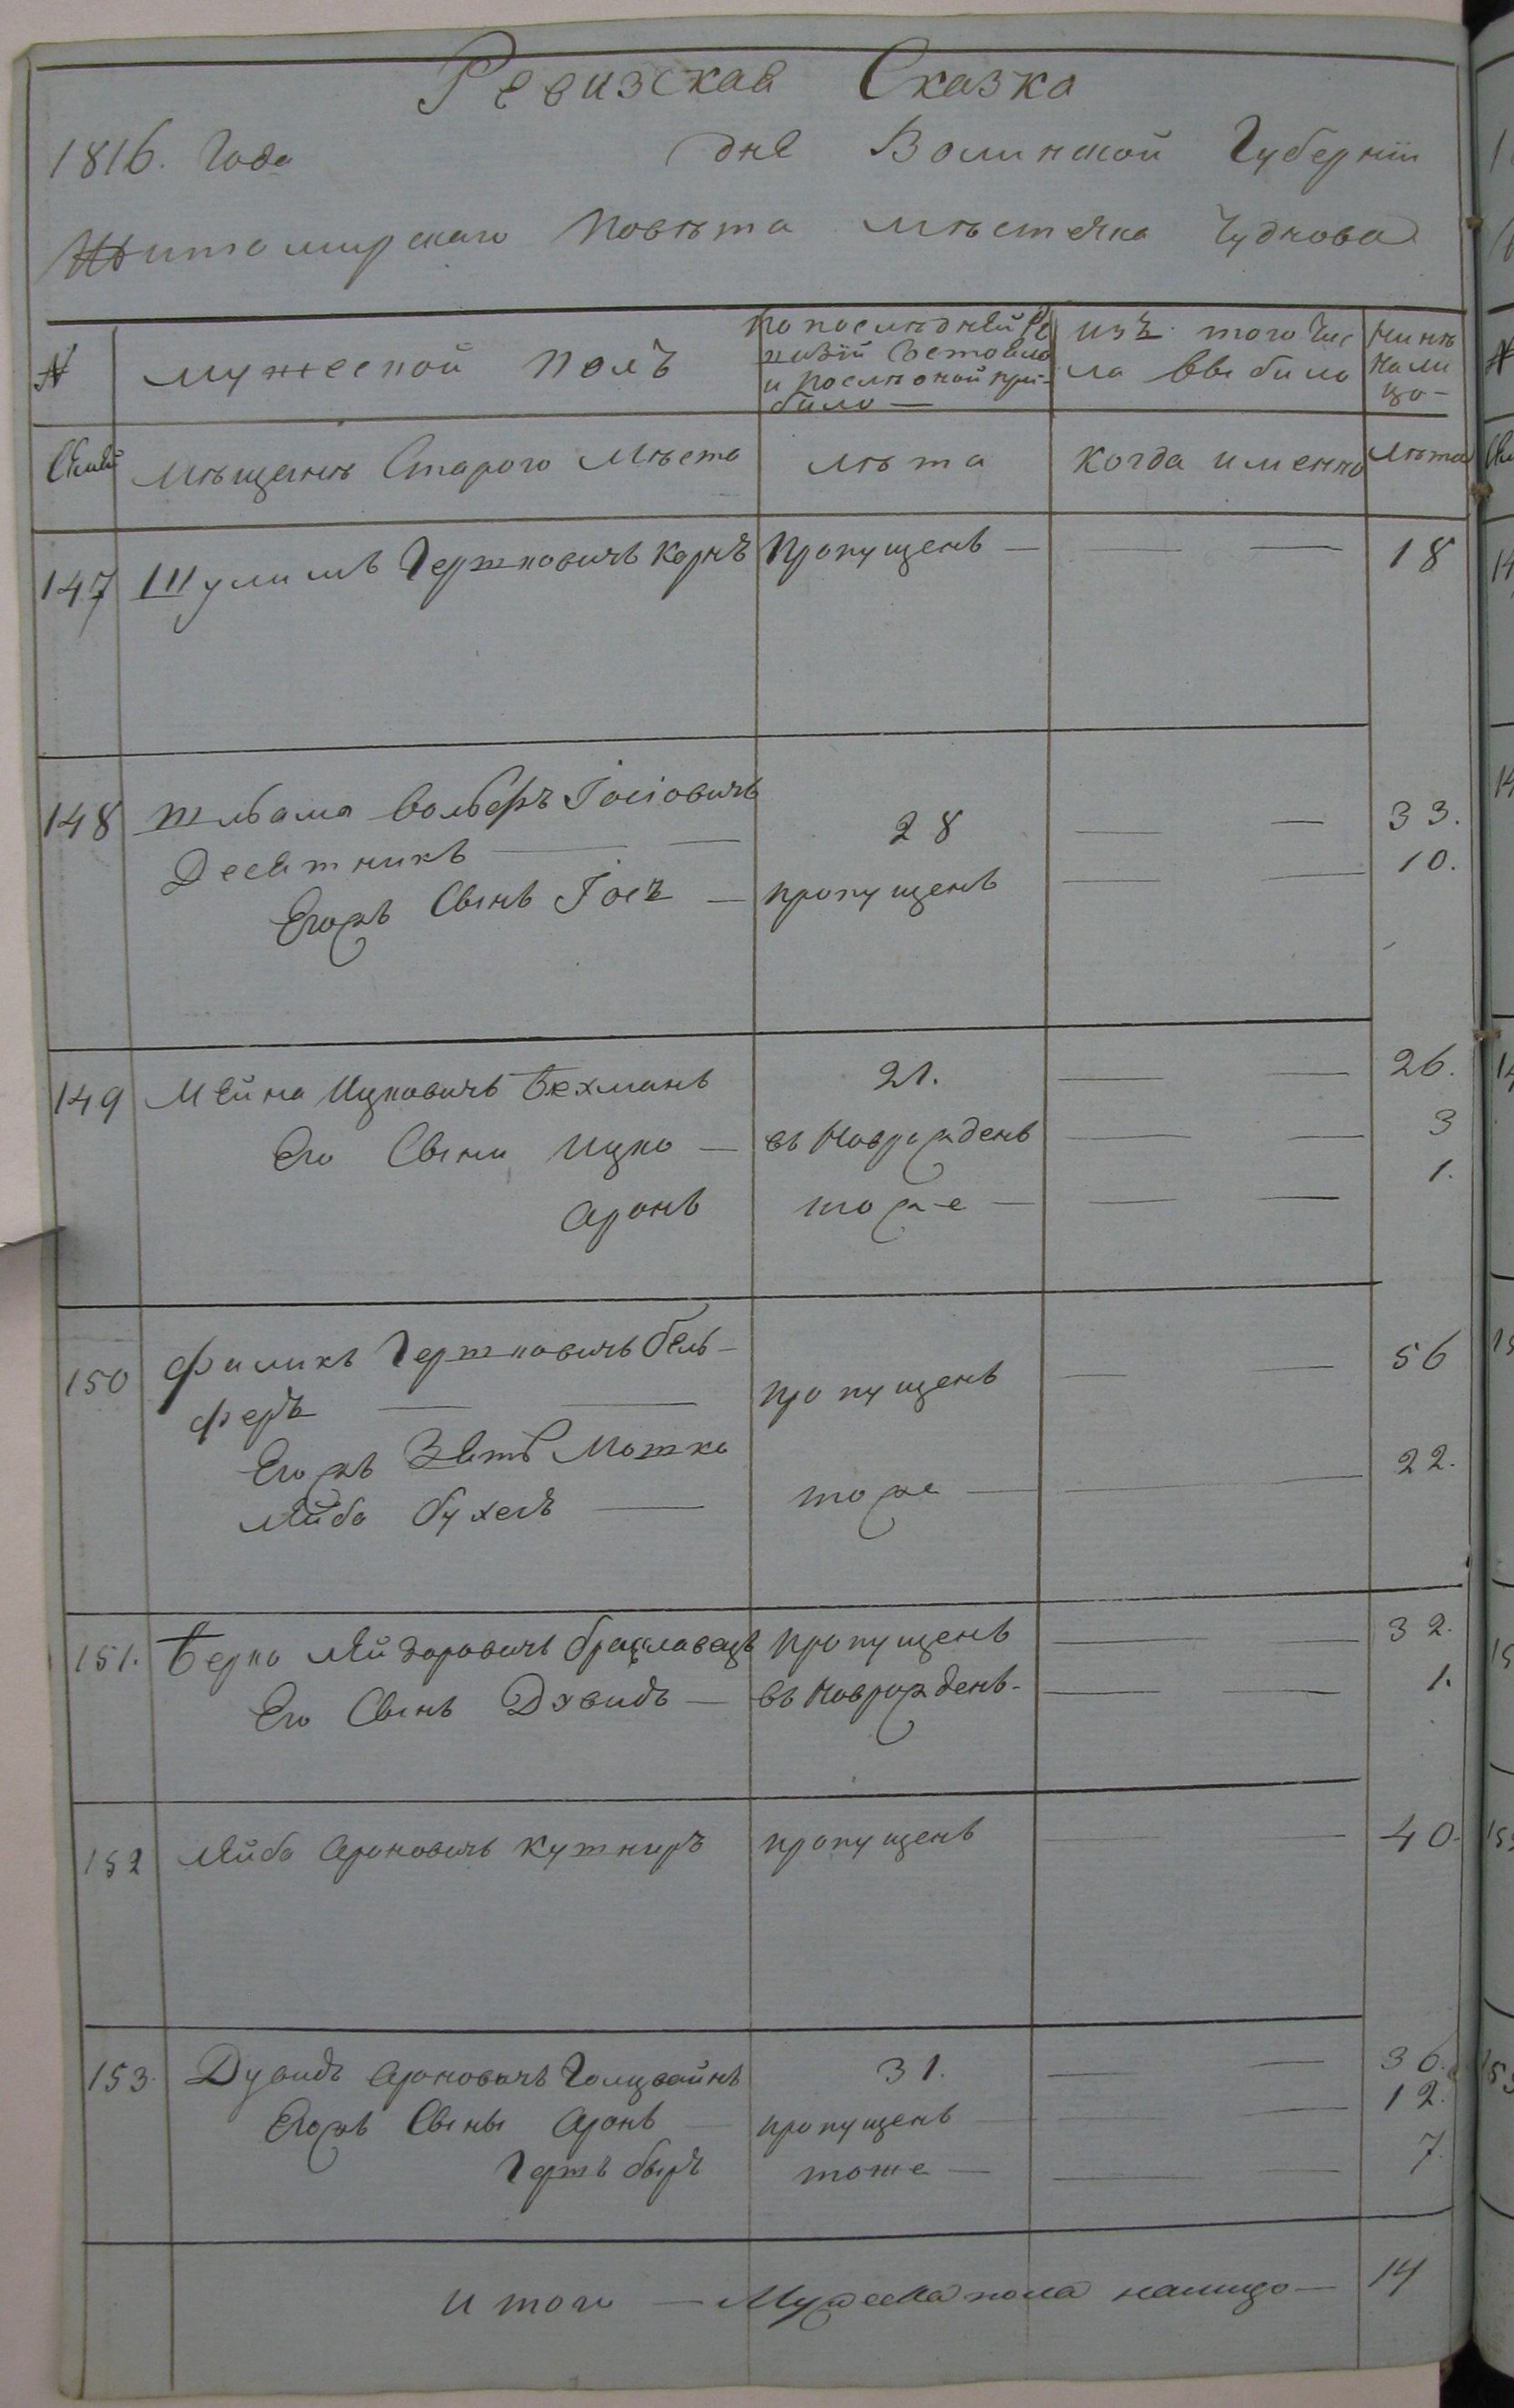 Ревизская Сказка
1816. Года дня Волинской Губернїи
Житомирскаго Повѣта мѣстечка Чуднова
№ мужеской полъ по последней Ре из того Чис Нинѣ
визїи состояло ла выбило нали
и послѣ оной при- цо-
било —
Семей мѣщанѣ Старого Мѣста лѣта когда именно лѣта
147 Шулимъ Гершковичъ Корнъ Пропущенъ — — — 18
148 Вольфъ Іосіовичъ
Десятникъ — — 28 — — 33.
Егожъ Сынъ Іосъ — пропущенъ — — 10.
149 Мейна Ицковичъ Бехманъ 21. — — 26.
Его Сыни Ицко — въ Новрожденъ — — 3
Аронъ тоже — — — 1.
150 Филикъ Гершковичъ Гель-
феръ — — пропущенъ — — 56
Егожъ Зять Мошко
Лейба — тоже — — 22.
151. Берко Лейзоровичъ Брацлавецъ пропущенъ — — 32.
Его Сынъ Дувидъ — въ Новрожденъ- — — 1.
152 Лейба Ароновичъ Кушниръ пропущенъ — — 40.
153. Дувидъ Ароновичъ Голцвайнъ 31. — — 36.
Егожъ Сыны Аронъ — пропущенъ — — 12.
Гершъ Беръ тоже — — — 7.
Итого — Мужеска пола налицо — 14